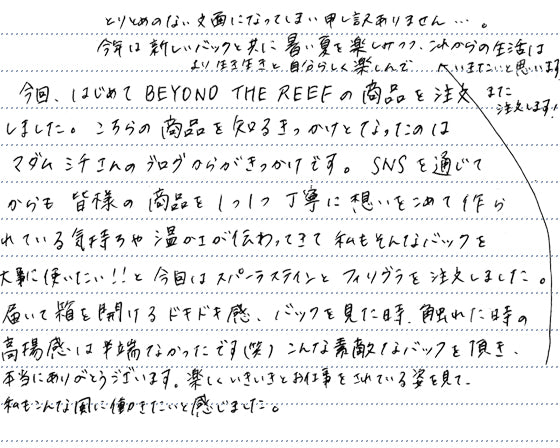 今回、はじめて BEYOND THE REEF の商品を注文
しました。こちらの商品を知るきっかけとなったのは
マダムミチさんのブログからがきっかけです。SNSを通じて
からも皆様の商品を1つ1つ丁寧に想いをこめて作ら
れている気持ちや温かさが伝わってきて私もそんなバックを
大事に使いたい!!と今回はスパーラステインとフィリグラを注文しました。
届いて箱を開けるドキドキ感、バックを見た時、触れた時の
高揚感は半端なかったです(笑)こんな素敵なバックを頂き、
本当にありがとうございます。楽しくいきいきとお仕事をされている姿を見て、
私もこんな風に働きたいと感じました。
今年は新しいバックと共に暑い夏を楽しみつつ、これからの生活は
より生き生きと自分らしく楽しんで いきたいと思います
また
注文します!
とりとめのない文面になってしまい申し訳ありません…。